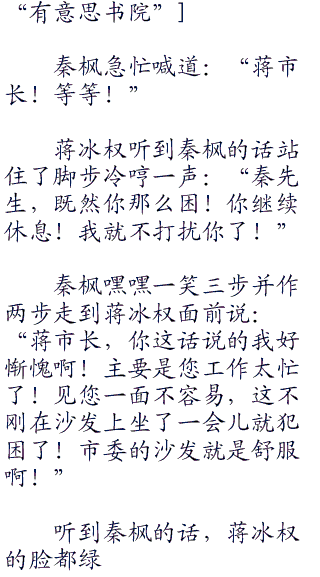 “有意思书院”]
秦枫急忙喊道：“蒋市
长！等等！”
蒋冰权听到秦枫的话站
住了脚步冷哼一声：“秦先
生，既然你那么困！你继续
休息！我就不打扰你了！”
秦枫嘿嘿一笑三步并作
两步走到蒋冰权面前说：
“蒋市长，你这话说的我好
惭愧啊！主要是您工作太忙
了！见您一面不容易，这不
刚在沙发上坐了一会儿就犯
困了！市委的沙发就是舒服
啊！”
听到秦枫的话，蒋冰权
的脸都绿